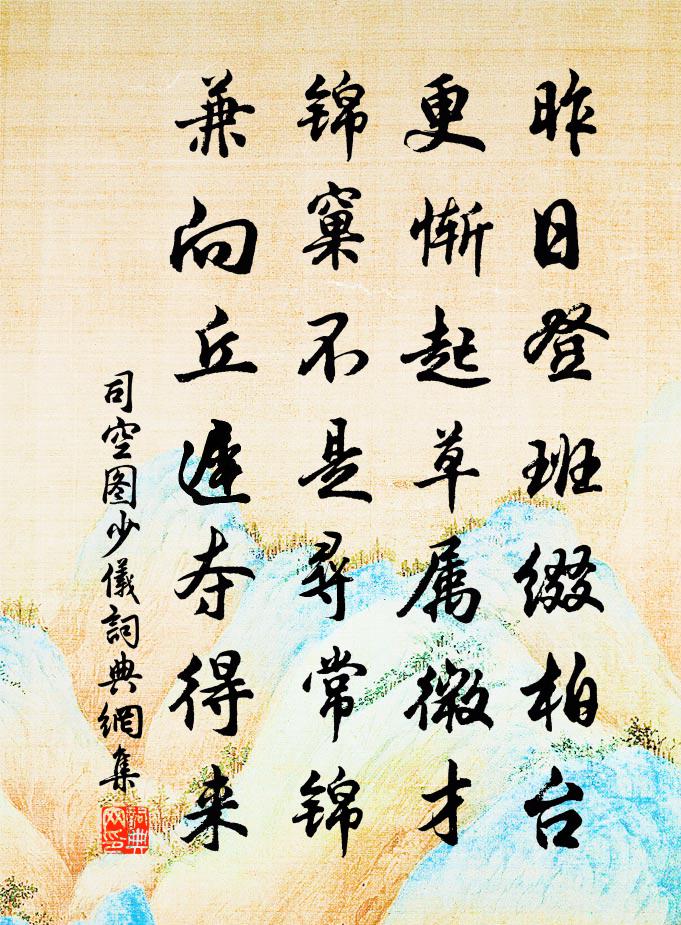 昨日登班缀柏台
更惭起草属微才
锦窠不是尋常锦
兼向丘遲夺得来
司空图少儀詞典網集
詞典网印